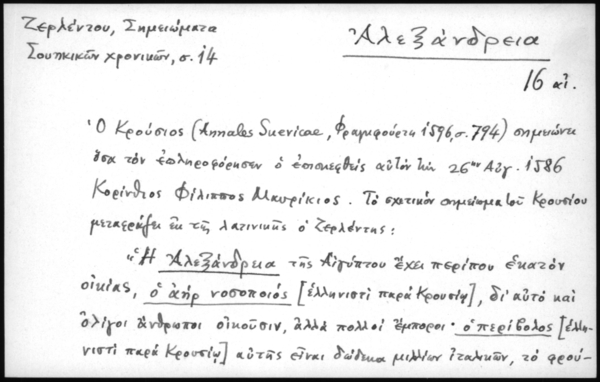 Ζερλέντου, Σημειώματα
Σουηκικῶν χρονικῶν, σ. 14
Ἀλεξάνδρεια
16 αἰ.
Ὁ Κρούσιος (Annales Suevicae, Φραγκφούρτη 1596, σ. 794) σημειώνει
ὅσα τὸν ἐπληροφόρησεν ὁ ἐπισκεφθεὶς αὐτὸν τὴν 26ην Αὐγ. 1586
Κορίνθιος Φίλιππος Μαυρίκιος. Τὸ σχετικὸν σημείωμα τοῦ Κρουσίου
μεταφράζει ἐκ τῆς λατινικῆς ὁ Ζερλέντης:
"Ἡ Ἀλεξάνδρεια τῆς Αἰγύπτου ἔχει περίπου ἑκατὸν
οἰκίας, ὁ ἀὴρ νοσοποιός [ἑλληνιστὶ παρὰ Κρουσίῳ], δι' αὐτὸ καὶ
ὀλίγοι ἄνθρωποι οἰκοῦσιν, ἀλλὰ πολλοὶ ἔμποροι· ὁ περίβολος [ἑλλη-
νιστὶ παρὰ Κρουσίῳ] αὐτῆς εἶναι δώδεκα μιλλίων ἰταλικῶν, τὸ φρού-